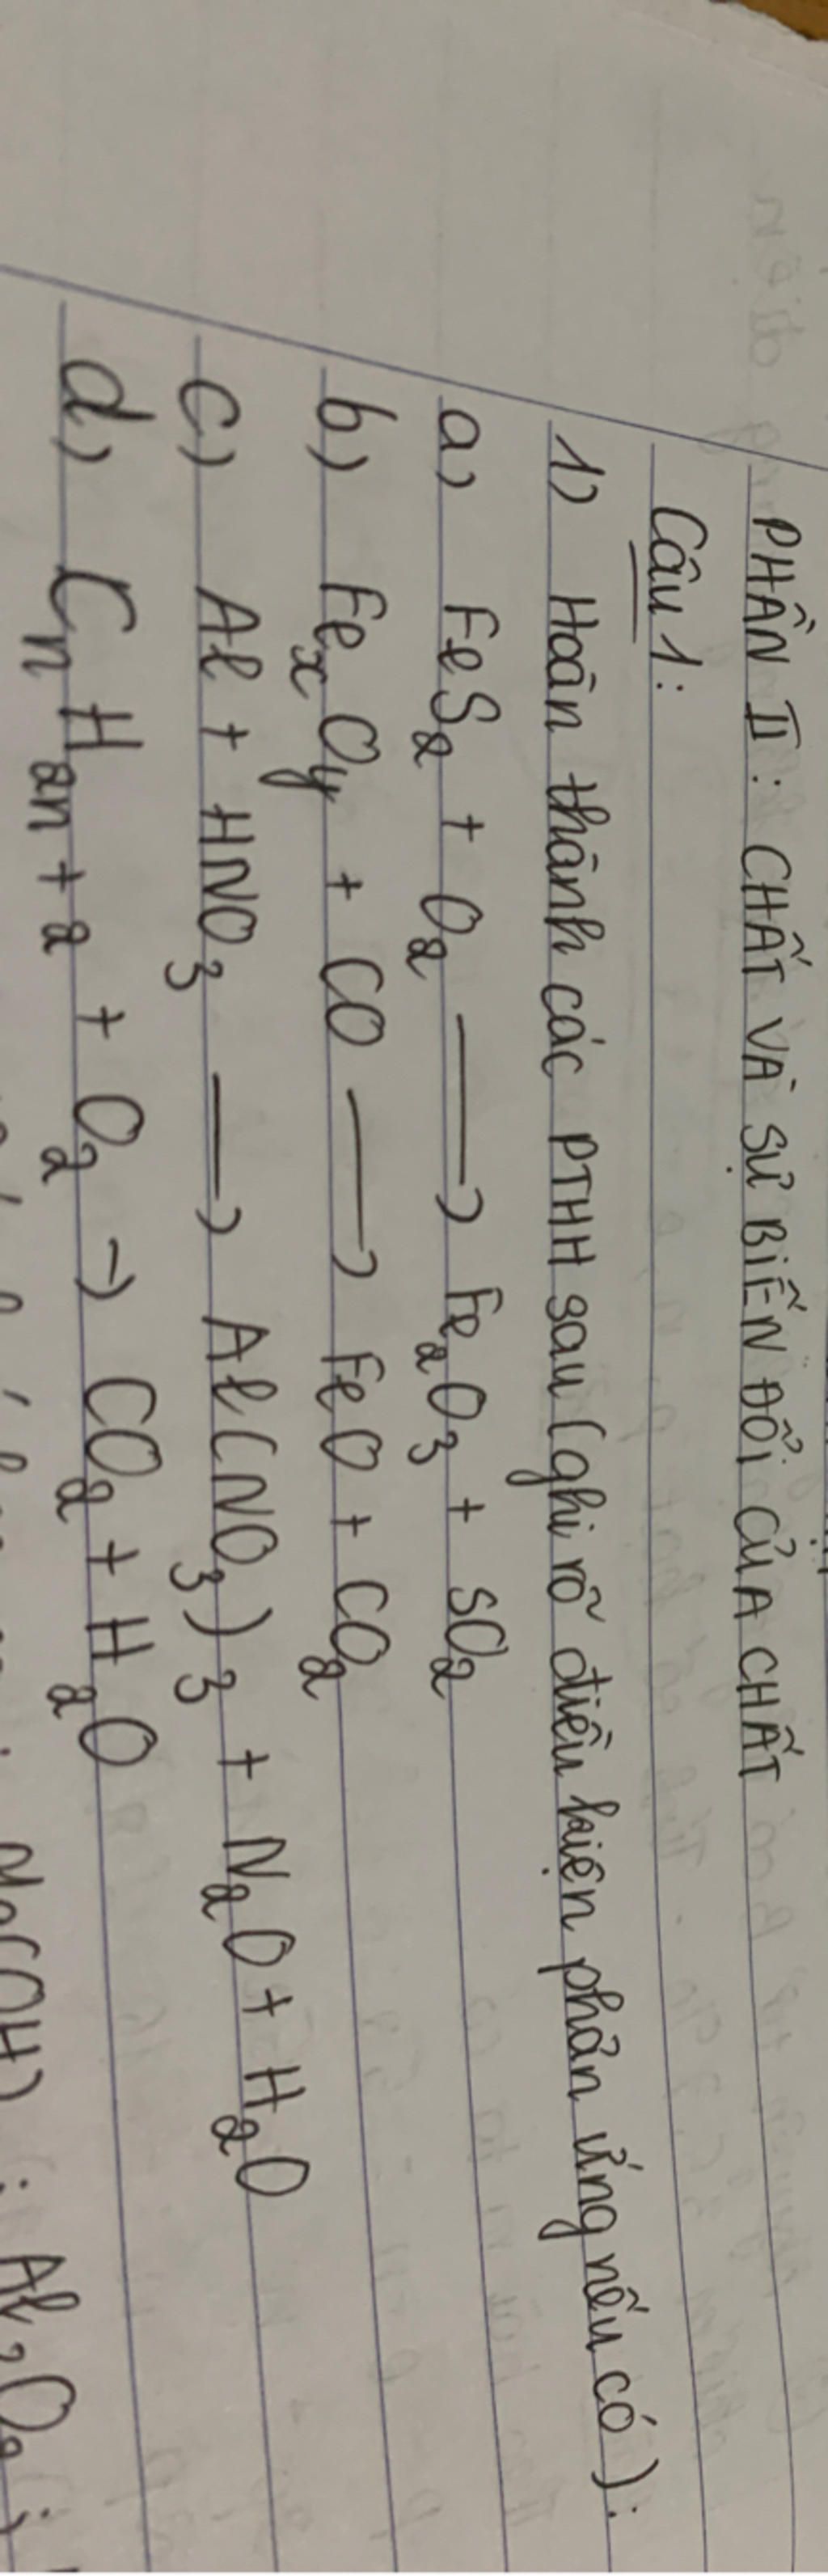 PHẦN II: CHẤT VÀ SỰ BIẾN ĐỔI CỦA CHẤT
Câu 1:
1) Hoàn thành các PTHH sau (ghi rõ điều kiện phản ứng nếu có):
a) FeS₂ + O₂ ⟶ Fe₂O₃ + SO₂
b) FeₓOᵧ + CO ⟶ FeO + CO₂
c) Al + HNO₃ ⟶ Al(NO₃)₃ + N₂O + H₂O
d) CₙH₂ₙ₊₂ + O₂ → CO₂ + H₂O